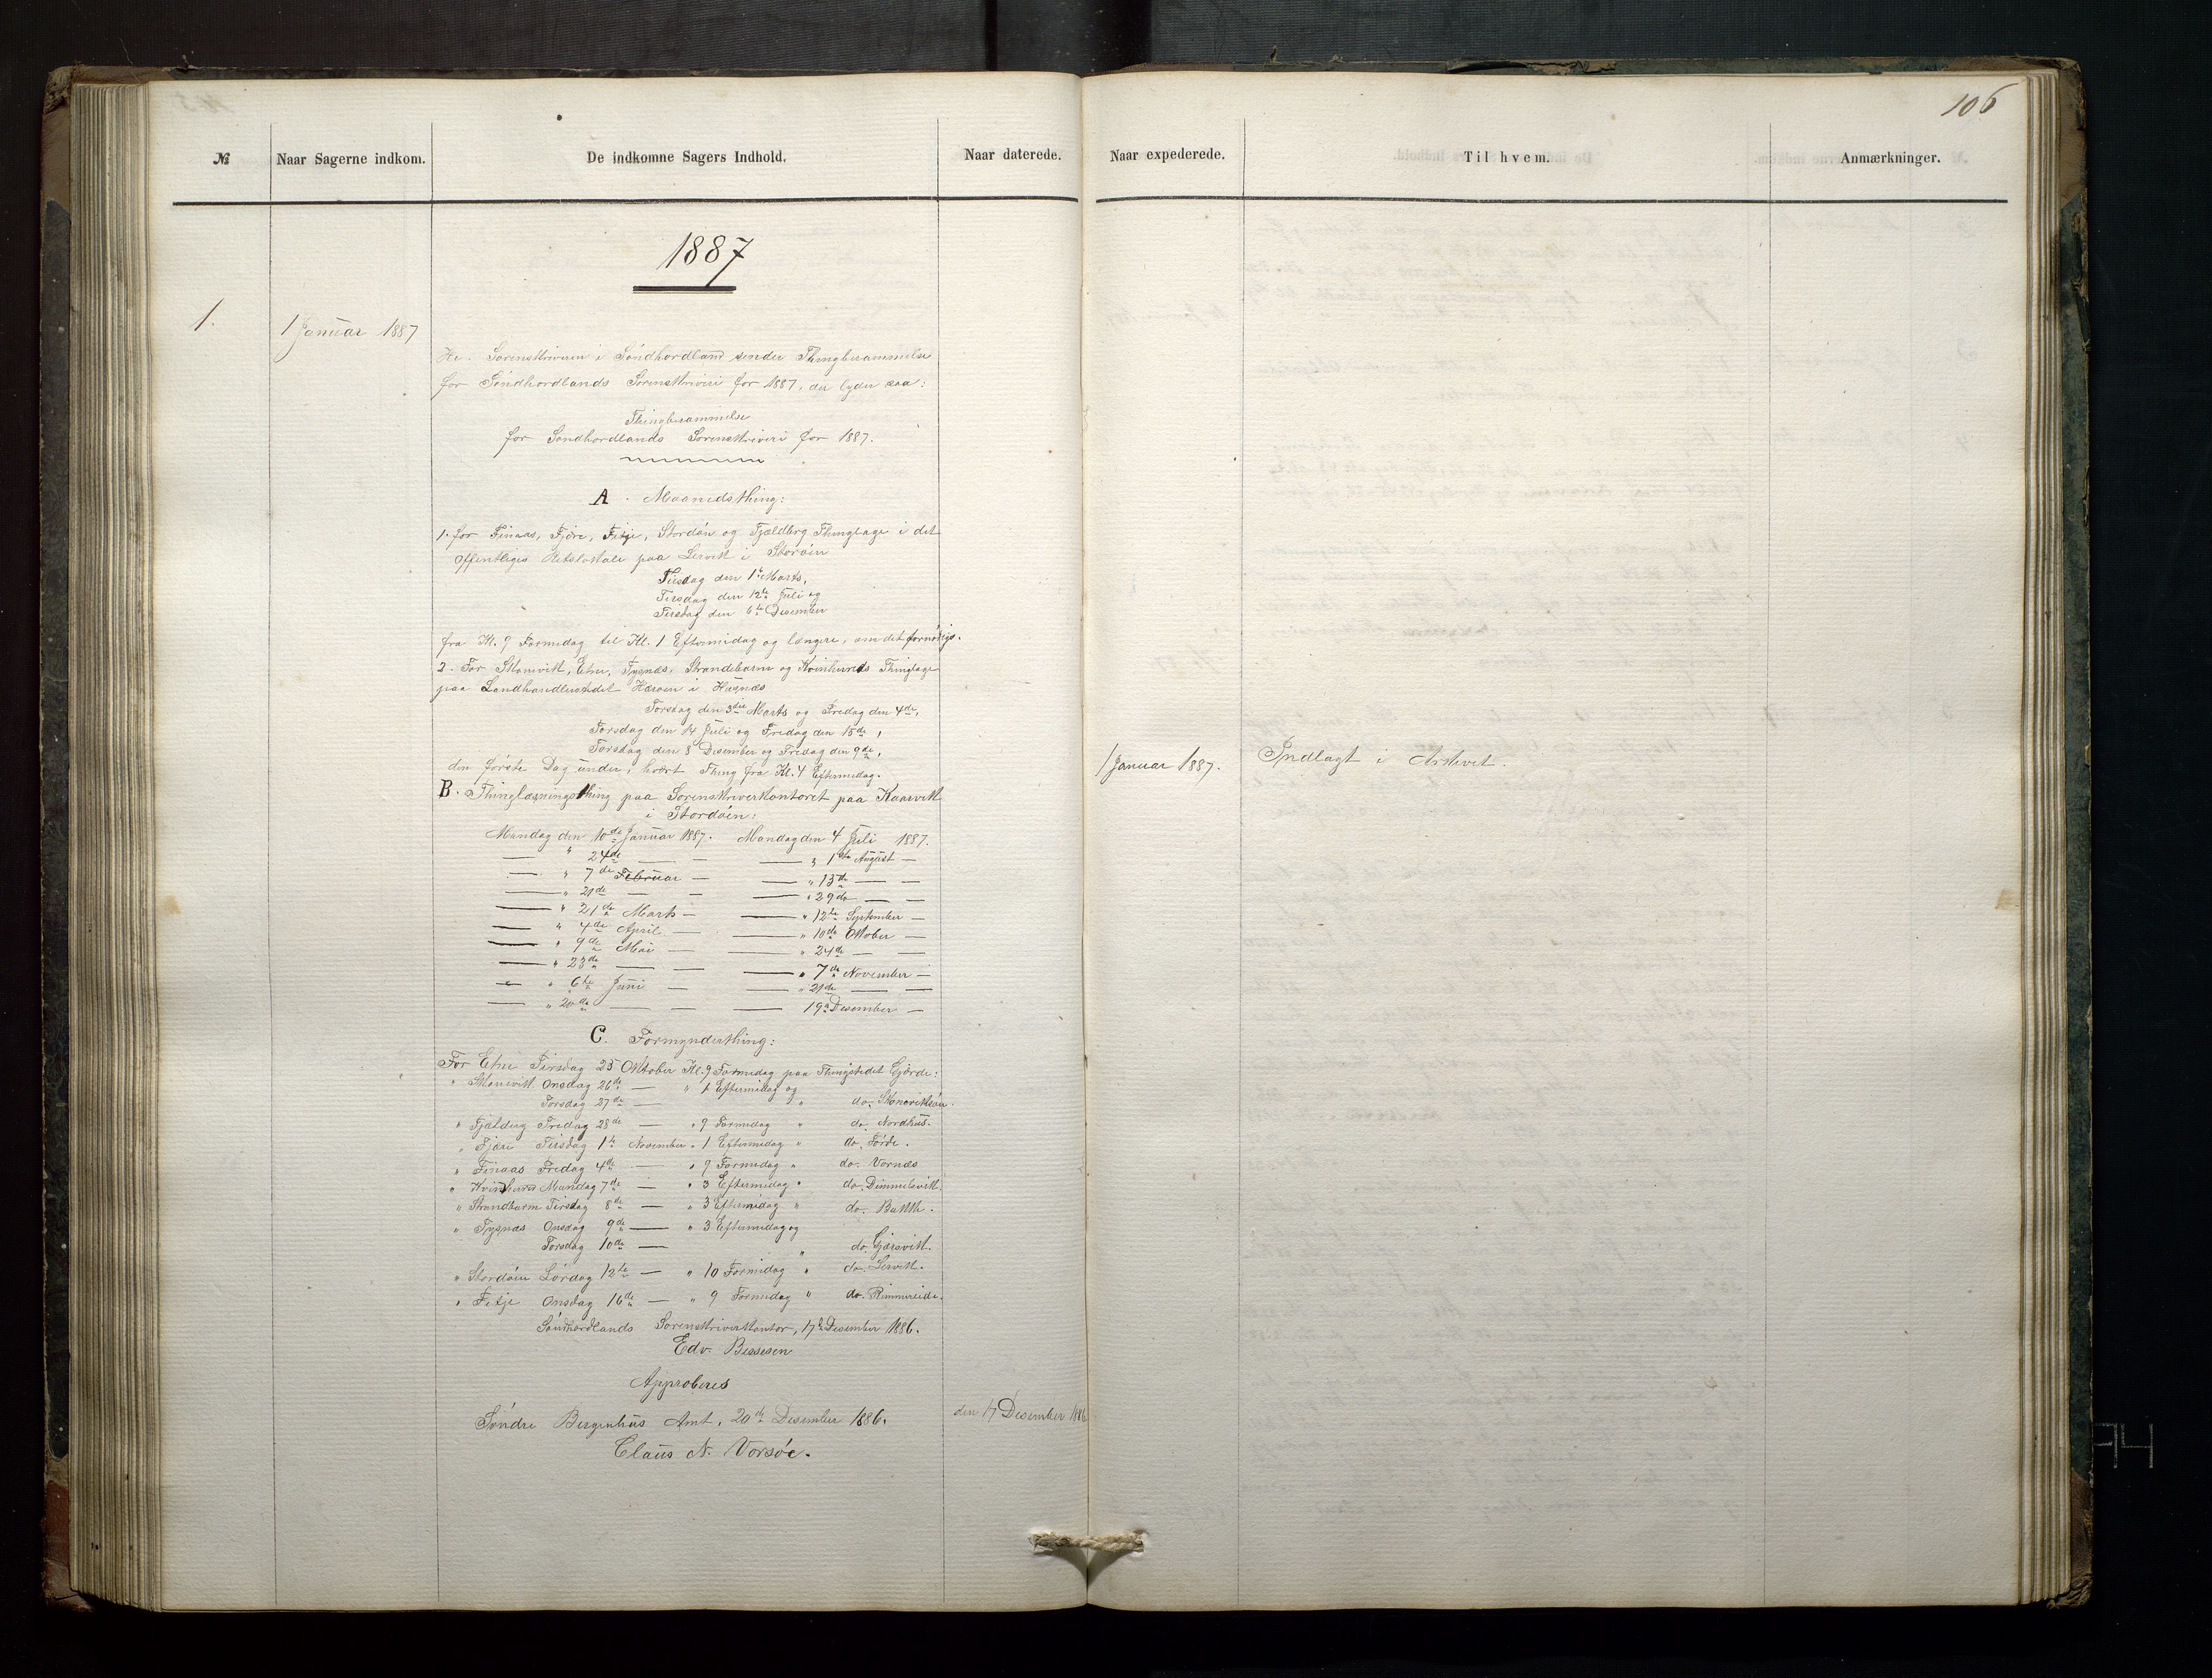 106
№ Naar Sagerne indkom. De indkomne Sagers Indhold. Naar daterede. Naar expederede. Til hvem. Anmærkninger.
1887
1. 1 Januar 1887
Hr. Sorenskriveren i Søndhordland sender Thingberammelse
for Søndhordlands Sorenskriveri for 1887, der lyder saa:
Thingberammelse
for Søndhordlands Sorenskriveri for 1887.
A. Maanedsthing:
1. for Finaas, Fjære, Fitje, Stordøn og Fjældberg Thinglage i det
Offentliges Retslokale paa Lervik i Storøen
Tirsdag den 1te Marts,
Tirsdag den 12te Juli og
Tirsdag den 6te Desember
fra Kl. 9 Formidag til Kl. 1 Eftermidag og længere, om det fornødiges.
2. For Skonevik, Etne, Tysnæs, Strandebarm og Kvinherreds Thinglage
paa Landhandlerstedet Herøen i Husnæs
Torsdag den 3die Marts og Fredag den 4de,
Torsdag den 14 Juli og Fredag den 15de,
Torsdag den 8 Desember og Fredag den 9de,
den første Dag under hvert Thing fra Kl. 4 Eftermidag.
B. Thinglæsningsthing paa Sorenskriverkontoret paa Kaarvik
i Stordøen:
Mandag den 10de Januar 1887. Mandag den 4 Juli 1887.
— " 24de — — — " 1ste August —
— " 7de Februar — — " 15de — —
— " 21de — — — " 29de — —
— " 21de Marts — — " 12te September —
— " 4de April — — " 10de Oktober —
— " 9de Mai — — " 24de — —
— " 23de — — — " 7de November —
— " 6te Juni — — " 21de — —
— " 20de — — — 19de Desember —
C. Formynderthing:
For Etne Tirsdag 25 Oktober Kl. 9 Formidag paa Thingstedet Gjerde:
" Skonevik Onsdag 26de — " 1 Eftermidag og
Torsdag 27de — " do. Skoneviksøen.
" Fjælberg Fredag 28de — " 9 Formidag " do. Nordhus.
" Fjære Tirsdag 1te November " 1 Eftermidag " do. Førde.
" Finaas Fredag 4de — " 9 Formidag " do. Vornæs
" Kvinherred Mandag 7de — " 3 Eftermidag " do. Dimmelsvik.
" Strandbarm Tirsdag 8de — " 3 Eftermidag " do. Bakke.
" Tysnæs Onsdag 9de — " 3 Eftermidag og
Torsdag 10de — " do. Gjersvik.
" Stordøen Lørdag 12te — " 10 Formidag " do. Lervik.
" Fitje Onsdag 16de — " 9 Formidag " do. Rimmereide.
Søndhordlands Sorenskriverkontor, 17de Desember 1886.
Edv. Bessesen
Approberes
Søndre Bergenhus Amt, 20de Desember 1886.
Claus N. Vorsøe.
den 17 Desember 1886
1 Januar 1887. Indlagt i Arkivet.